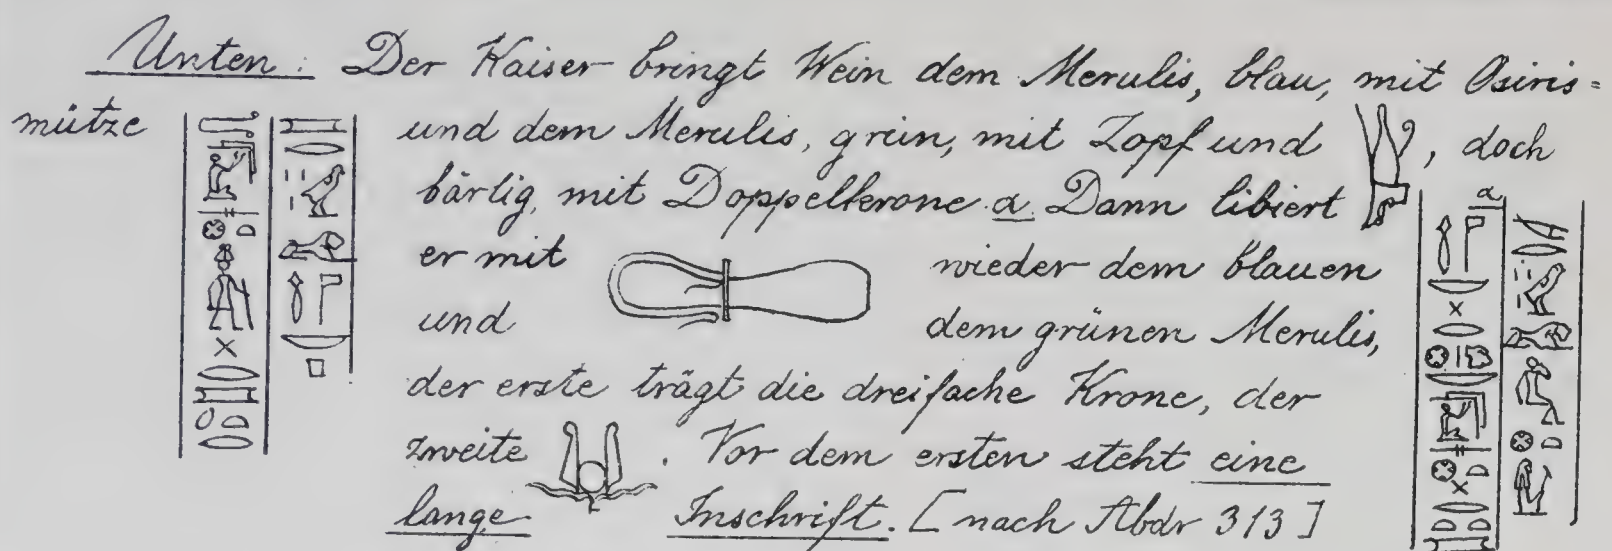 Unten: Der Kaiser bringt Wein dem Merulis, blau, mit Osiris=
mütze und dem Merulis, grün, mit Zopf und , doch
bärtig, mit Doppelkrone α. Dann libiert
er mit wieder dem blauen
und dem grünen Merulis,
der erste trägt die dreifache Krone, der
zweite . Vor dem ersten steht eine
lange Inschrift. [nach Abdr 313]
α